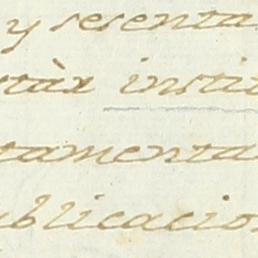 y sesenta
tàx institu
tamenta
ublicacion